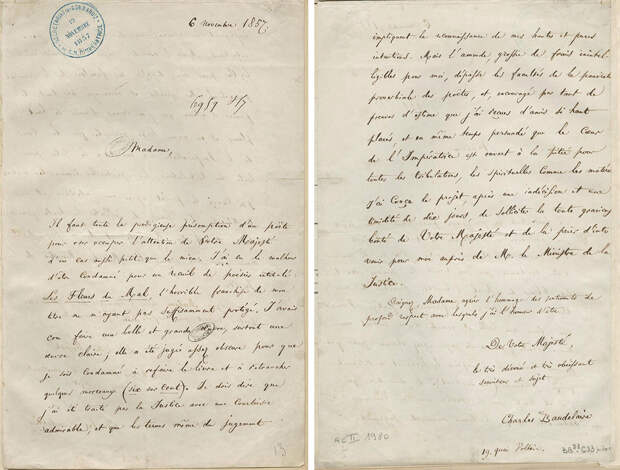 6 Novembre 1857
19
NOVEMBRE
1857
6959
Madame,
Il faut toute la prodigieuse présomption d'un poëte
pour oser occuper l'attention de Votre Majesté
d'un cas aussi petit que le mien. J'ai eu le malheur
d'être condamné pour un recueil de poésies intitulé:
Les Fleurs du Mal, l'horrible franchise de mon
titre ne m'ayant pas suffisamment protégé. J'avais
cru faire une belle et grande œuvre, surtout une
œuvre claire; elle a été jugée assez obscure pour que
je sois condamné à refaire le livre et à retrancher
quelques morceaux (six sur cent). Je dois dire que
j'ai été traité par la Justice avec une courtoisie
admirable, et que les termes même du jugement
13
impliquent la reconnaissance de mes hautes et pures
intentions. Mais l'amende, grossie de frais inintel-
ligibles pour moi, dépasse les facultés de la pauvreté
proverbiale des poëtes, et, encouragé par tant de
preuves d'estime que j'ai reçues d'amis si haut
placés, et en même temps persuadé que le Cœur
de l'Impératrice est ouvert à la pitié pour
toutes les tribulations, les spirituelles comme les matérielles
j'ai conçu le projet, après une indécision et une
timidité de dix jours, de solliciter la toute gracieuse
bonté de Votre Majesté et de la prier d'inter-
venir pour moi auprès de M. le Ministre de la
Justice.
Daignez, Madame, agréer l'hommage des sentiments de
profond respect avec lesquels j'ai l'honneur d'être
De Votre Majesté,
le très dévoué et très obéissant
serviteur et sujet
Charles Baudelaire
19, quai Voltaire.
AE II 1980